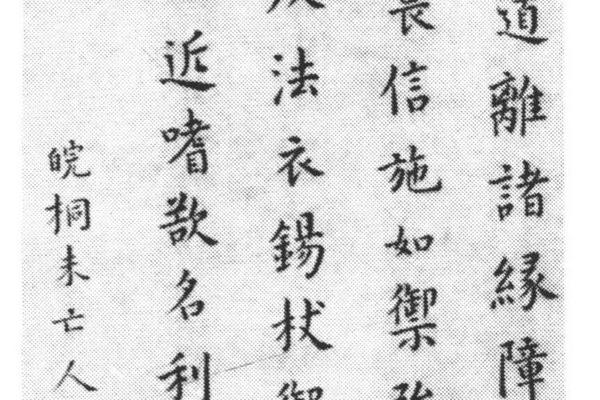 道離諸緣障
畏信施如禦
法衣錫杖禦
近嗜歡名利
皖桐未亡人